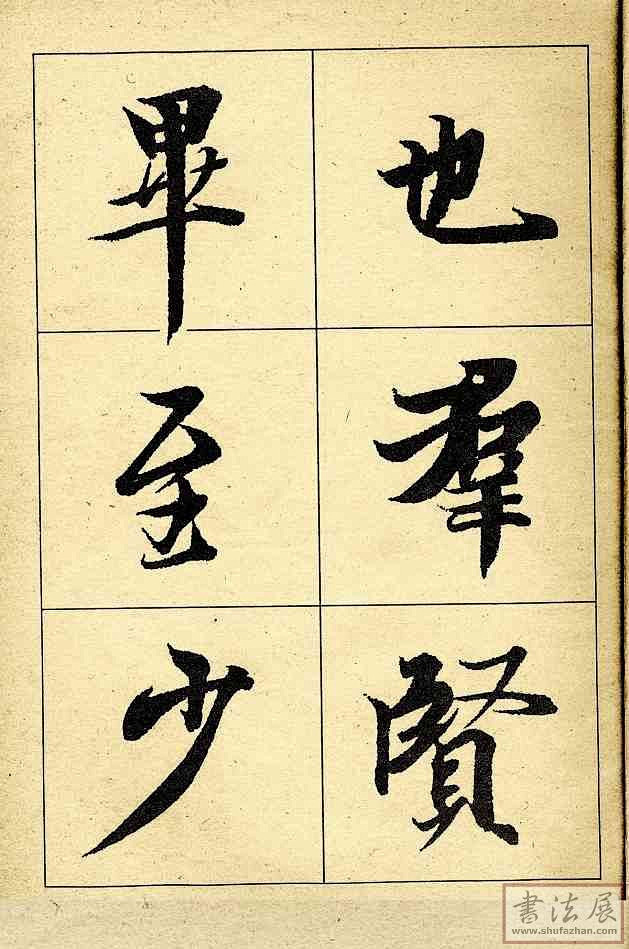 也羣賢
畢至少
書法展
www.shufazhan.com